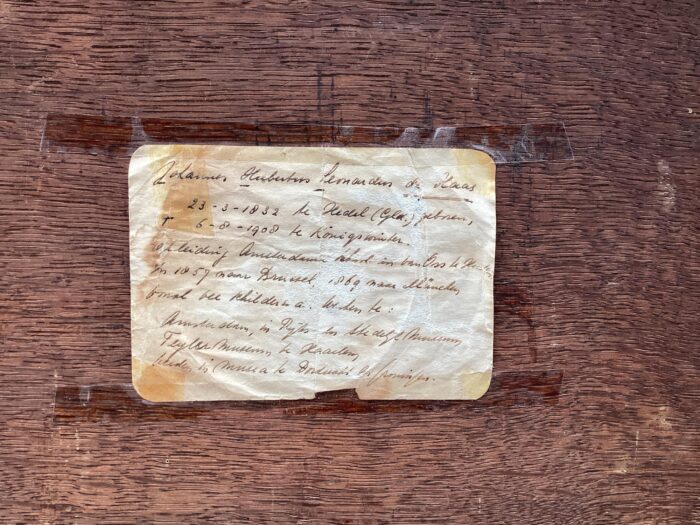 Johannes Hubertus Leonardus de Haas
23-3-1832 te Hedel (Gld.) geboren,
† 6-8-1908 te Königswinter
opleiding Amsterdam
In 1857 naar Brussel, 1869 naar München
vooral vee schilder a. werken te:
Amsterdam, in Rijks en Stedelijk Museum,
Teyler Museum te Haarlem,
in musea te Dordrecht en Groningen.